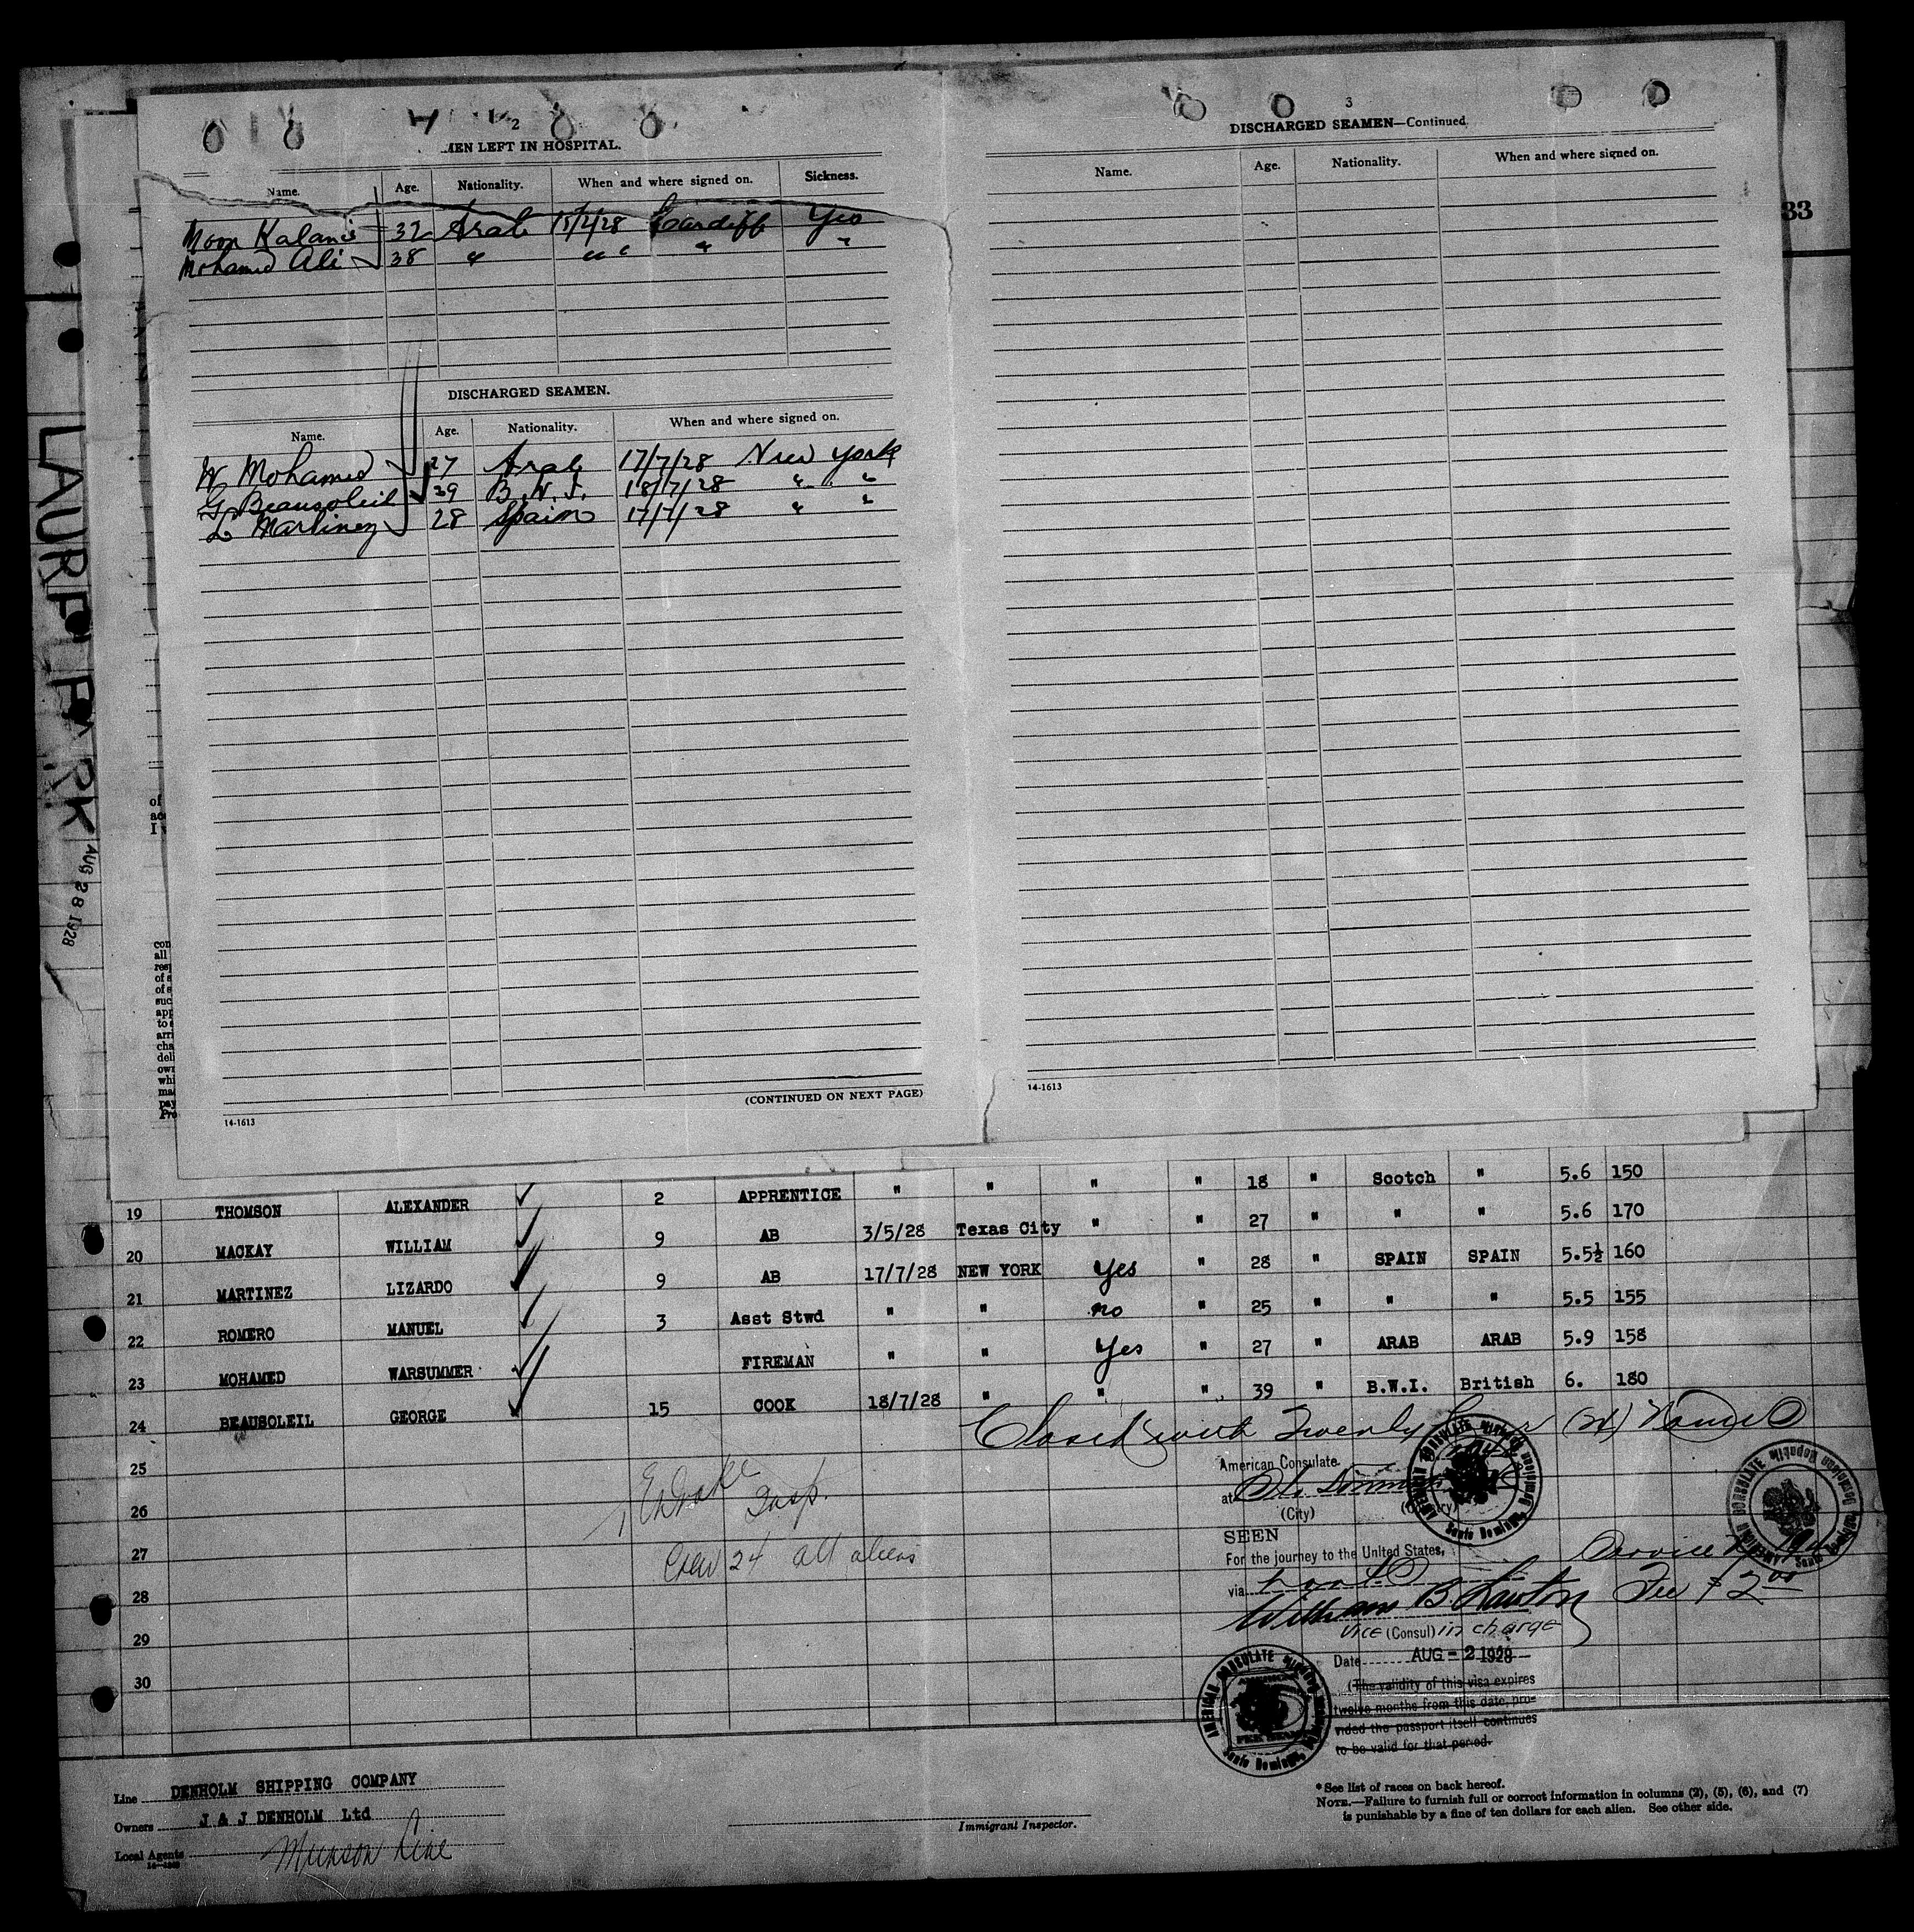 2
MEN LEFT IN HOSPITAL.
Name. Age. Nationality. When and where signed on. Sickness.
32 Arab 15/2/28 Cardiff Yes
Mohamed Ali 38 " " " " "
DISCHARGED SEAMEN.
Name. Age. Nationality. When and where signed on.
W Mohamed 27 Arab 17/7/28 New York
G. Beausoleil 39 B.W.I. 18/7/28 " "
L Martinez 28 Spain 17/7/28 " "
(CONTINUED ON NEXT PAGE)
14-1613
3
DISCHARGED SEAMEN—Continued.
Name. Age. Nationality. When and where signed on.
14-1613
33
LAUREL PARK
AUG 28 1928
19 THOMSON ALEXANDER 2 APPRENTICE " " " " 18 " Scotch " 5.6 150
20 MACKAY WILLIAM 9 AB 3/5/28 Texas City " " 27 " " " 5.6 170
21 MARTINEZ LIZARDO 9 AB 17/7/28 NEW YORK Yes " 28 " SPAIN SPAIN 5.5½ 160
22 ROMERO MANUEL 3 Asst Stwd " " no " 25 " " " 5.5 155
23 MOHAMED WARSUMMER FIREMAN " " Yes " 27 " ARAB ARAB 5.9 158
24 BEAUSOLEIL GEORGE 15 COOK 18/7/28 " " " 39 " B.W.I. British 6. 180
25
26
27
28
29
30
Closed with Twenty four (24) Names
Insp.
Crew 24 all aliens
American Consulate
at
(City) (Country)
SEEN
For the journey to the United States,
via
William B. Lawton
Vice (Consul) in charge
Date AUG - 2 1928
(The validity of this visa expires
twelve months from this date, pro-
vided the passport itself continues
to be valid for that period.
Service No.
Fee $2.00
AMERICAN CONSULATE Santo Domingo, Dominican Republic
AMERICAN CONSULATE Santo Domingo, Dominican Republic
AMERICAN CONSULATE Santo Domingo, Dominican Republic
Line DENHOLM SHIPPING COMPANY
Owners J & J DENHOLM Ltd
Local Agents Munson Line
Immigrant Inspector.
*See list of races on back hereof.
NOTE.—Failure to furnish full or correct information in columns (2), (5), (6), and (7)
is punishable by a fine of ten dollars for each alien. See other side.